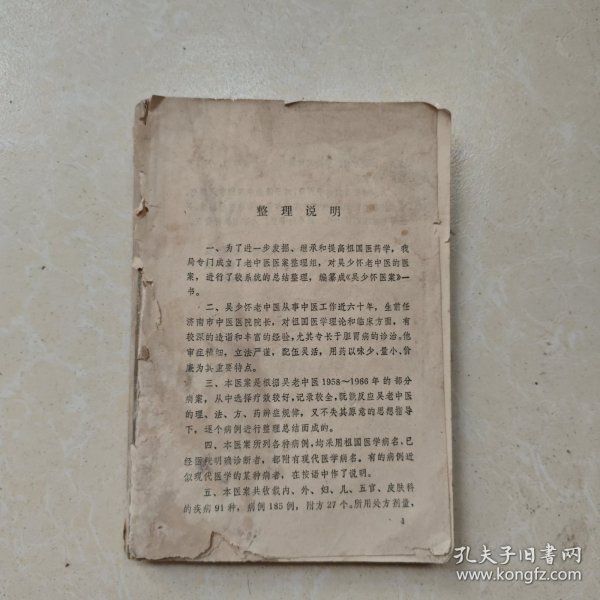 整理说明
一、为了进一步发掘、继承和提高祖国医药学，我
局专门成立了老中医医案整理组，对吴少怀老中医的医
案，进行了较系统的总结整理，编纂成《吴少怀医案》一
书。
二、吴少怀老中医从事中医工作近六十年，生前任
济南市中医医院院长，对祖国医学理论和临床方面，有
较深的造诣和丰富的经验，尤其专长于脾胃病的诊治。他
审症精细，立法严谨，配伍灵活，用药以味少、量小、价
廉为其重要特点。
三、本医案是根据吴老中医1958～1966年的部分
病案，从中选择疗效较好，记录较全，既能反应吴老中医
的理、法、方、药辨症规律，又不失其原意的思想指导
下，逐个病例进行整理总结而成的。
四、本医案所列各种病例，均采用祖国医学病名，已
经医院明确诊断者，都附有现代医学病名。有的病例近
似现代医学的某种病者，在按语中作了说明。
五、本医案共收载内、外、妇、儿、五官、皮肤科
的疾病91种，病例185例，附方27个。所用处方剂量，
1
孔夫子旧书网
www.kongfz.com